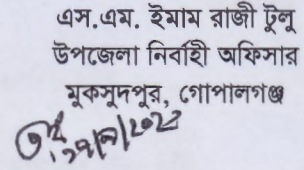 এস.এম. ইমাম রাজী টুলু
উপজেলা নির্বাহী অফিসার
মুকসুদপুর, গোপালগঞ্জ